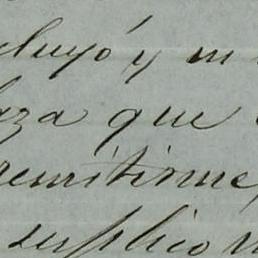 cluyó y en
aza que
remitirme,
suplico